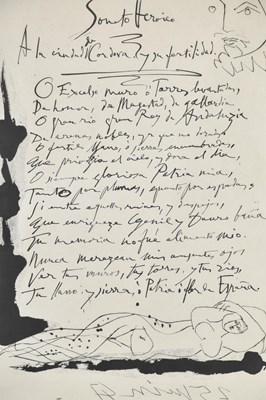 Soneto Heroico
A la ciudad de Cordova y su fertilidad.
O Excelso muro, ô Torres levantadas,
De honor, de Magestad, de gallardia
O gran rio, gran Rey de Andaluzia
De arenas nobles, ya que no doradas
O fertil llano, ô sierras encumbradas,
Que privilegia el cielo, y dora el dia,
O siempre gloriosa Patria mia,
Tanto por plumas, quanto por espadas;
Si entre aquellas ruinas, y despojos,
Que enriqueze Genil, y Dauro baña
Tu memoria no fué alimento mio.
Nunca merezcan mis ausentes ojos
Ver tus muros, tus torres, y tus rios,
Tu llano, y sierra, ô Patria, ô flor de España.